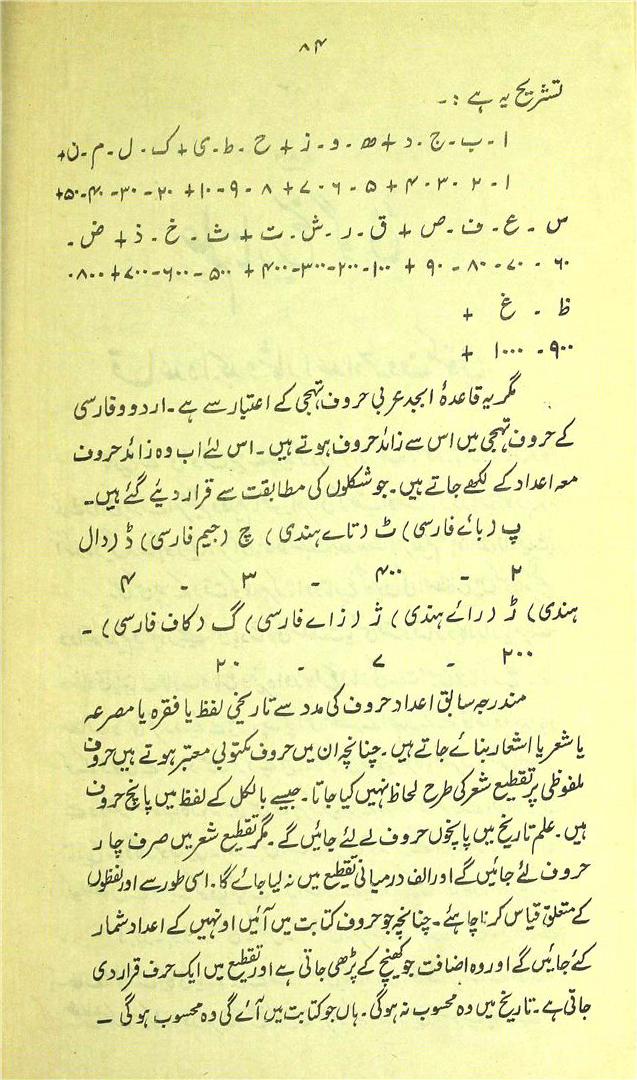 ۸۴
تشریح یہ ہے :۔
ا۔ ب۔ ج۔ د + ھ۔ و۔ ز + ح۔ ط۔ ی + ک۔ ل۔ م۔ ن +
۱۔ ۲۔ ۳۔ ۴ + ۵۔ ۶۔ ۷ + ۸۔ ۹۔ ۱۰ + ۲۰۔ ۳۰۔ ۴۰۔ ۵۰ +
س۔ ع۔ ف۔ ص + ق۔ ر۔ ش۔ ت + ث۔ خ۔ ذ + ض۔
۶۰۔ ۷۰۔ ۸۰۔ ۹۰ + ۱۰۰۔ ۲۰۰۔ ۳۰۰۔ ۴۰۰ + ۵۰۰۔ ۶۰۰۔ ۷۰۰ + ۸۰۰۔
ظ۔ غ +
۹۰۰۔ ۱۰۰۰ +
مگر یہ قاعدۂ ابجد عربی حروف تہجی کے اعتبار سے ہے۔ اردو و فارسی
کے حروف تہجی میں اس سے زائد حروف ہوتے ہیں۔ اس لئے اب وہ زائد حروف
معہ اعداد کے لکھے جاتے ہیں۔ جو شکلوں کی مطابقت سے قرار دیئے گئے ہیں۔
پ (بائے فارسی) ٹ (تاے ہندی) چ (جیم فارسی) ڈ (دال
۲ ۔ ۴۰۰ ۔ ۳ ۔ ۴
ہندی) ڑ (رائے ہندی) ژ (زاے فارسی) گ (کاف فارسی)۔
۲۰۰ ۔ ۷ ۔ ۲۰
مندرجہ سابق اعداد حروف کی مدد سے تاریخی لفظ یا فقرہ یا مصرعہ
یا شعر یا اشعار بنائے جاتے ہیں۔ چنانچہ ان میں حروف مکتوبی معتبر ہوتے ہیں حروف
ملفوظی پر تقطیع شعر کی طرح لحاظ نہیں کیا جاتا۔ جیسے بالکل کے لفظ میں پانچ حروف
ہیں۔ علم تاریخ میں پانچوں حروف لے لئے جائیں گے۔ مگر تقطیع شعر میں صرف چار
حروف لئے جائیں گے اور الف درمیانی تقطیع میں نہ لیا جائے گا۔ اسی طور سے اور لفظوں
کے متعلق قیاس کرنا چاہئے۔ چنانچہ جو حروف کتابت میں آئیں اونہیں کے اعداد شمار
کئے جائیں گے اور وہ اضافت جو کھینچ کے پڑھی جاتی ہے اور تقطیع میں ایک حرف قرار دی
جاتی ہے۔ تاریخ میں وہ محسوب نہ ہوگی۔ ہاں جو کتابت میں آئے گی وہ محسوب ہوگی ۔